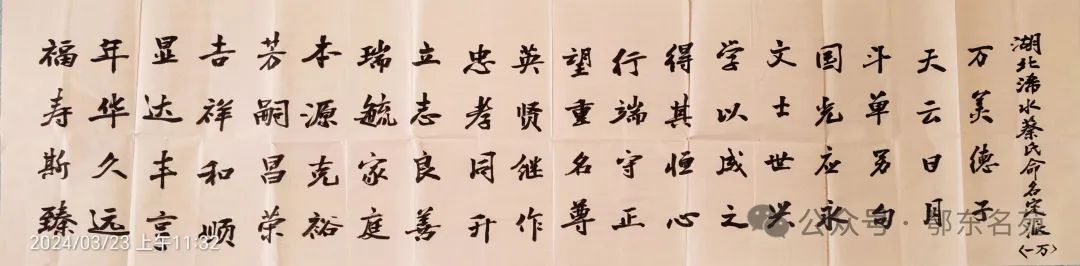 湖北浠水蔡氏命名宗派
〈一万〉
万美德子
天云日月
斗单另句
国光应永
文士世兴
学以成之
得其恒心
行端守正
望重名尊
英贤继作
忠孝同升
立志良善
瑞毓家庭
本源克裕
芳嗣昌荣
吉祥和顺
显达丰亨
年华久远
福寿斯臻
2024/03/23 上午11:32
公众号·鄂东名苑